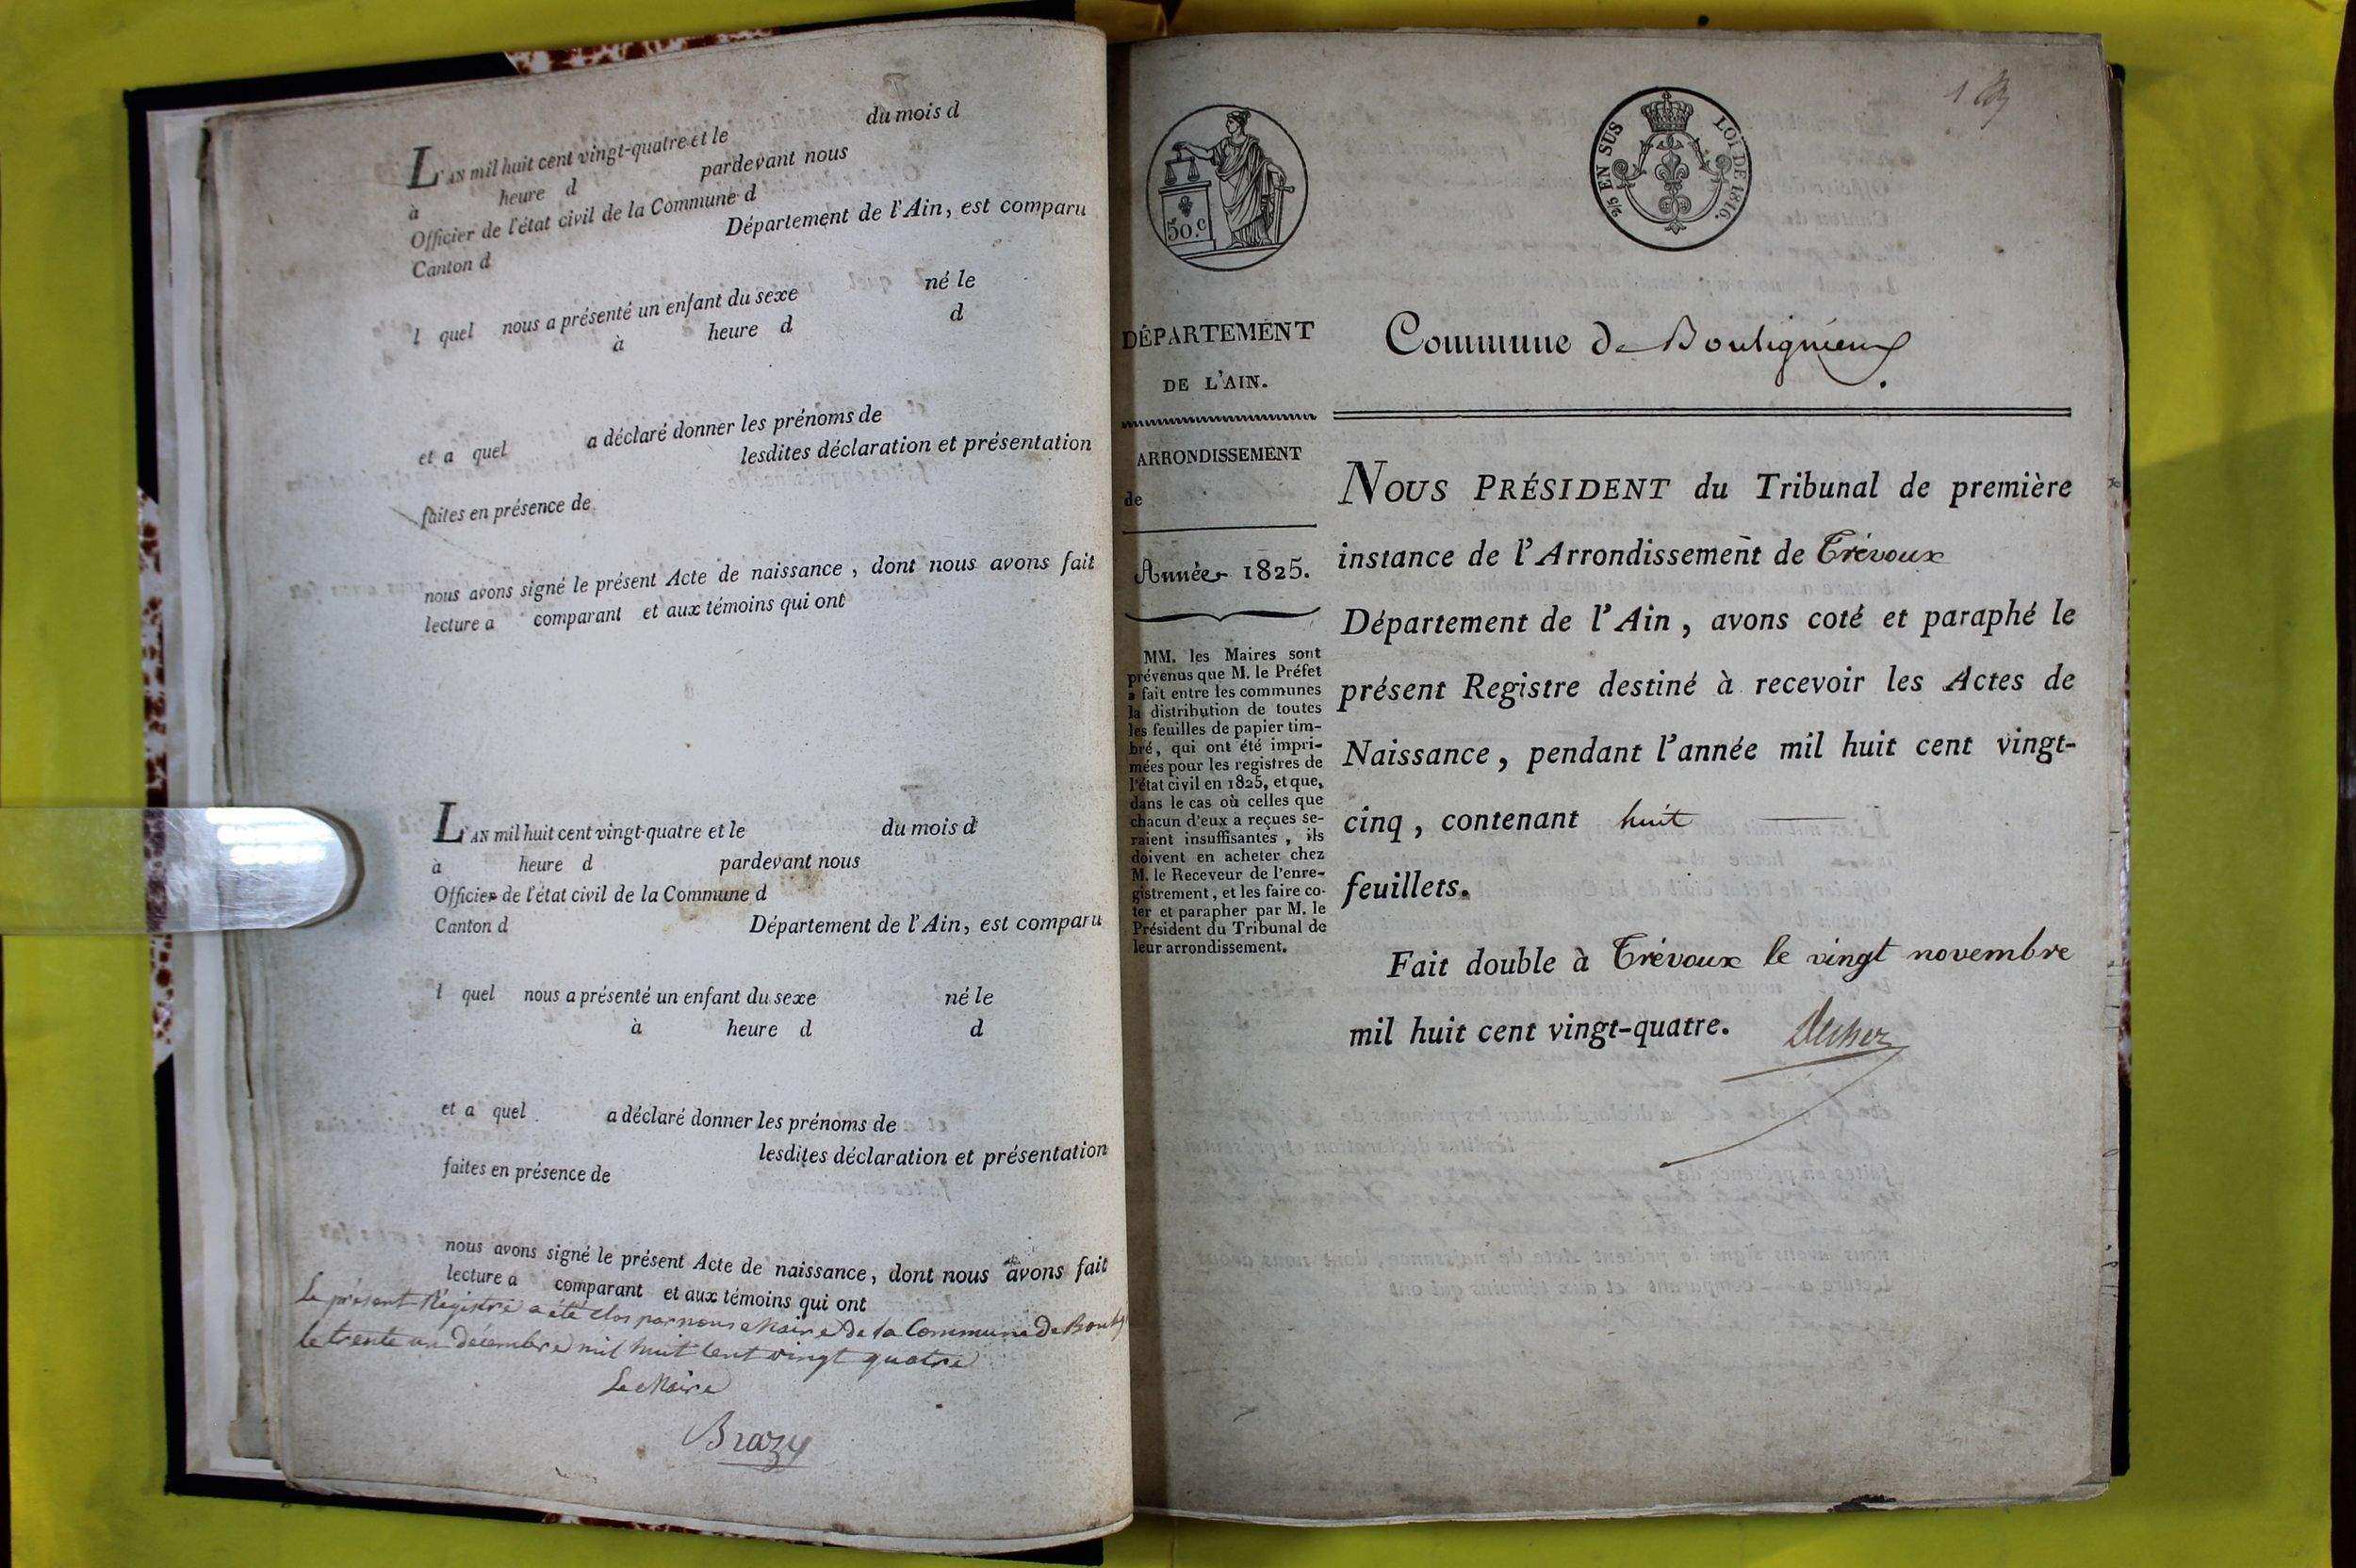 L'AN mil huit cent vingt-quatre et le du mois d
à heure d pardevant nous
Officier de l'état civil de la Commune d
Canton d Département de l'Ain, est comparu
l quel nous a présenté un enfant du sexe né le
à heure d d
et a quel a déclaré donner les prénoms de
lesdites déclaration et présentation
faites en présence de
nous avons signé le présent Acte de naissance, dont nous avons fait
lecture a comparant et aux témoins qui ont
L'AN mil huit cent vingt-quatre et le du mois d
à heure d pardevant nous
Officier de l'état civil de la Commune d
Canton d Département de l'Ain, est comparu
l quel nous a présenté un enfant du sexe né le
à heure d d
et a quel a déclaré donner les prénoms de
lesdites déclaration et présentation
faites en présence de
nous avons signé le présent Acte de naissance, dont nous avons fait
lecture a comparant et aux témoins qui ont
Le présent Régistre a été Clos par nous Maire de la Commune de
le trente un décembre mil huit Cent vingt quatre
Le Maire
Brazy
50.c
2/5 EN SUS LOI DE 1816.
1
DÉPARTEMENT
DE L'AIN.
ARRONDISSEMENT
de
Année 1825.
MM. les Maires sont
prévenus que M. le Préfet
a fait entre les communes
la distribution de toutes
les feuilles de papier tim-
bré, qui ont été impri-
mées pour les registres de
l'état civil en 1825, et que,
dans le cas où celles que
chacun d'eux a reçues se-
raient insuffisantes, ils
doivent en acheter chez
M. le Receveur de l'enre-
gistrement, et les faire co-
ter et parapher par M. le
Président du Tribunal de
leur arrondissement.
Commune de Bouligneux
NOUS PRÉSIDENT du Tribunal de première
instance de l'Arrondissement de Trévoux
Département de l'Ain, avons coté et paraphé le
présent Registre destiné à recevoir les Actes de
Naissance, pendant l'année mil huit cent vingt-
cinq, contenant huit
feuillets.
Fait double à Trévoux le vingt novembre
mil huit cent vingt-quatre.